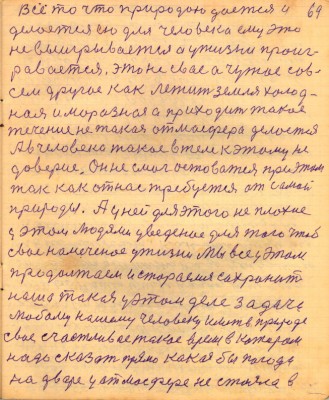 69
Всё то что природою дается и
делается ею для человека ему это
не выигрывается а у жизни проиг-
равается. Это не свае а чужое сов-
сем другое как летит земля холод-
ная и морозная а приходит такое
течение не такая атмасфера делается
А в человека такое в теле к этому не
доверие. Он не смог остоватся при этом
так как от нас требуется от самой
природы. А у ней для этого не плохие
у этом людям уведеное для того чтоб
свое намеченое у жизни Мы все у этом
продолжаем и стораемся сохранит
наша такая у этом деле задача
любому нашему человеку в природе
свое счастливае такое время в котером
надо сказат прямо какая бы погода
на дваре у атмосфере не стояла в